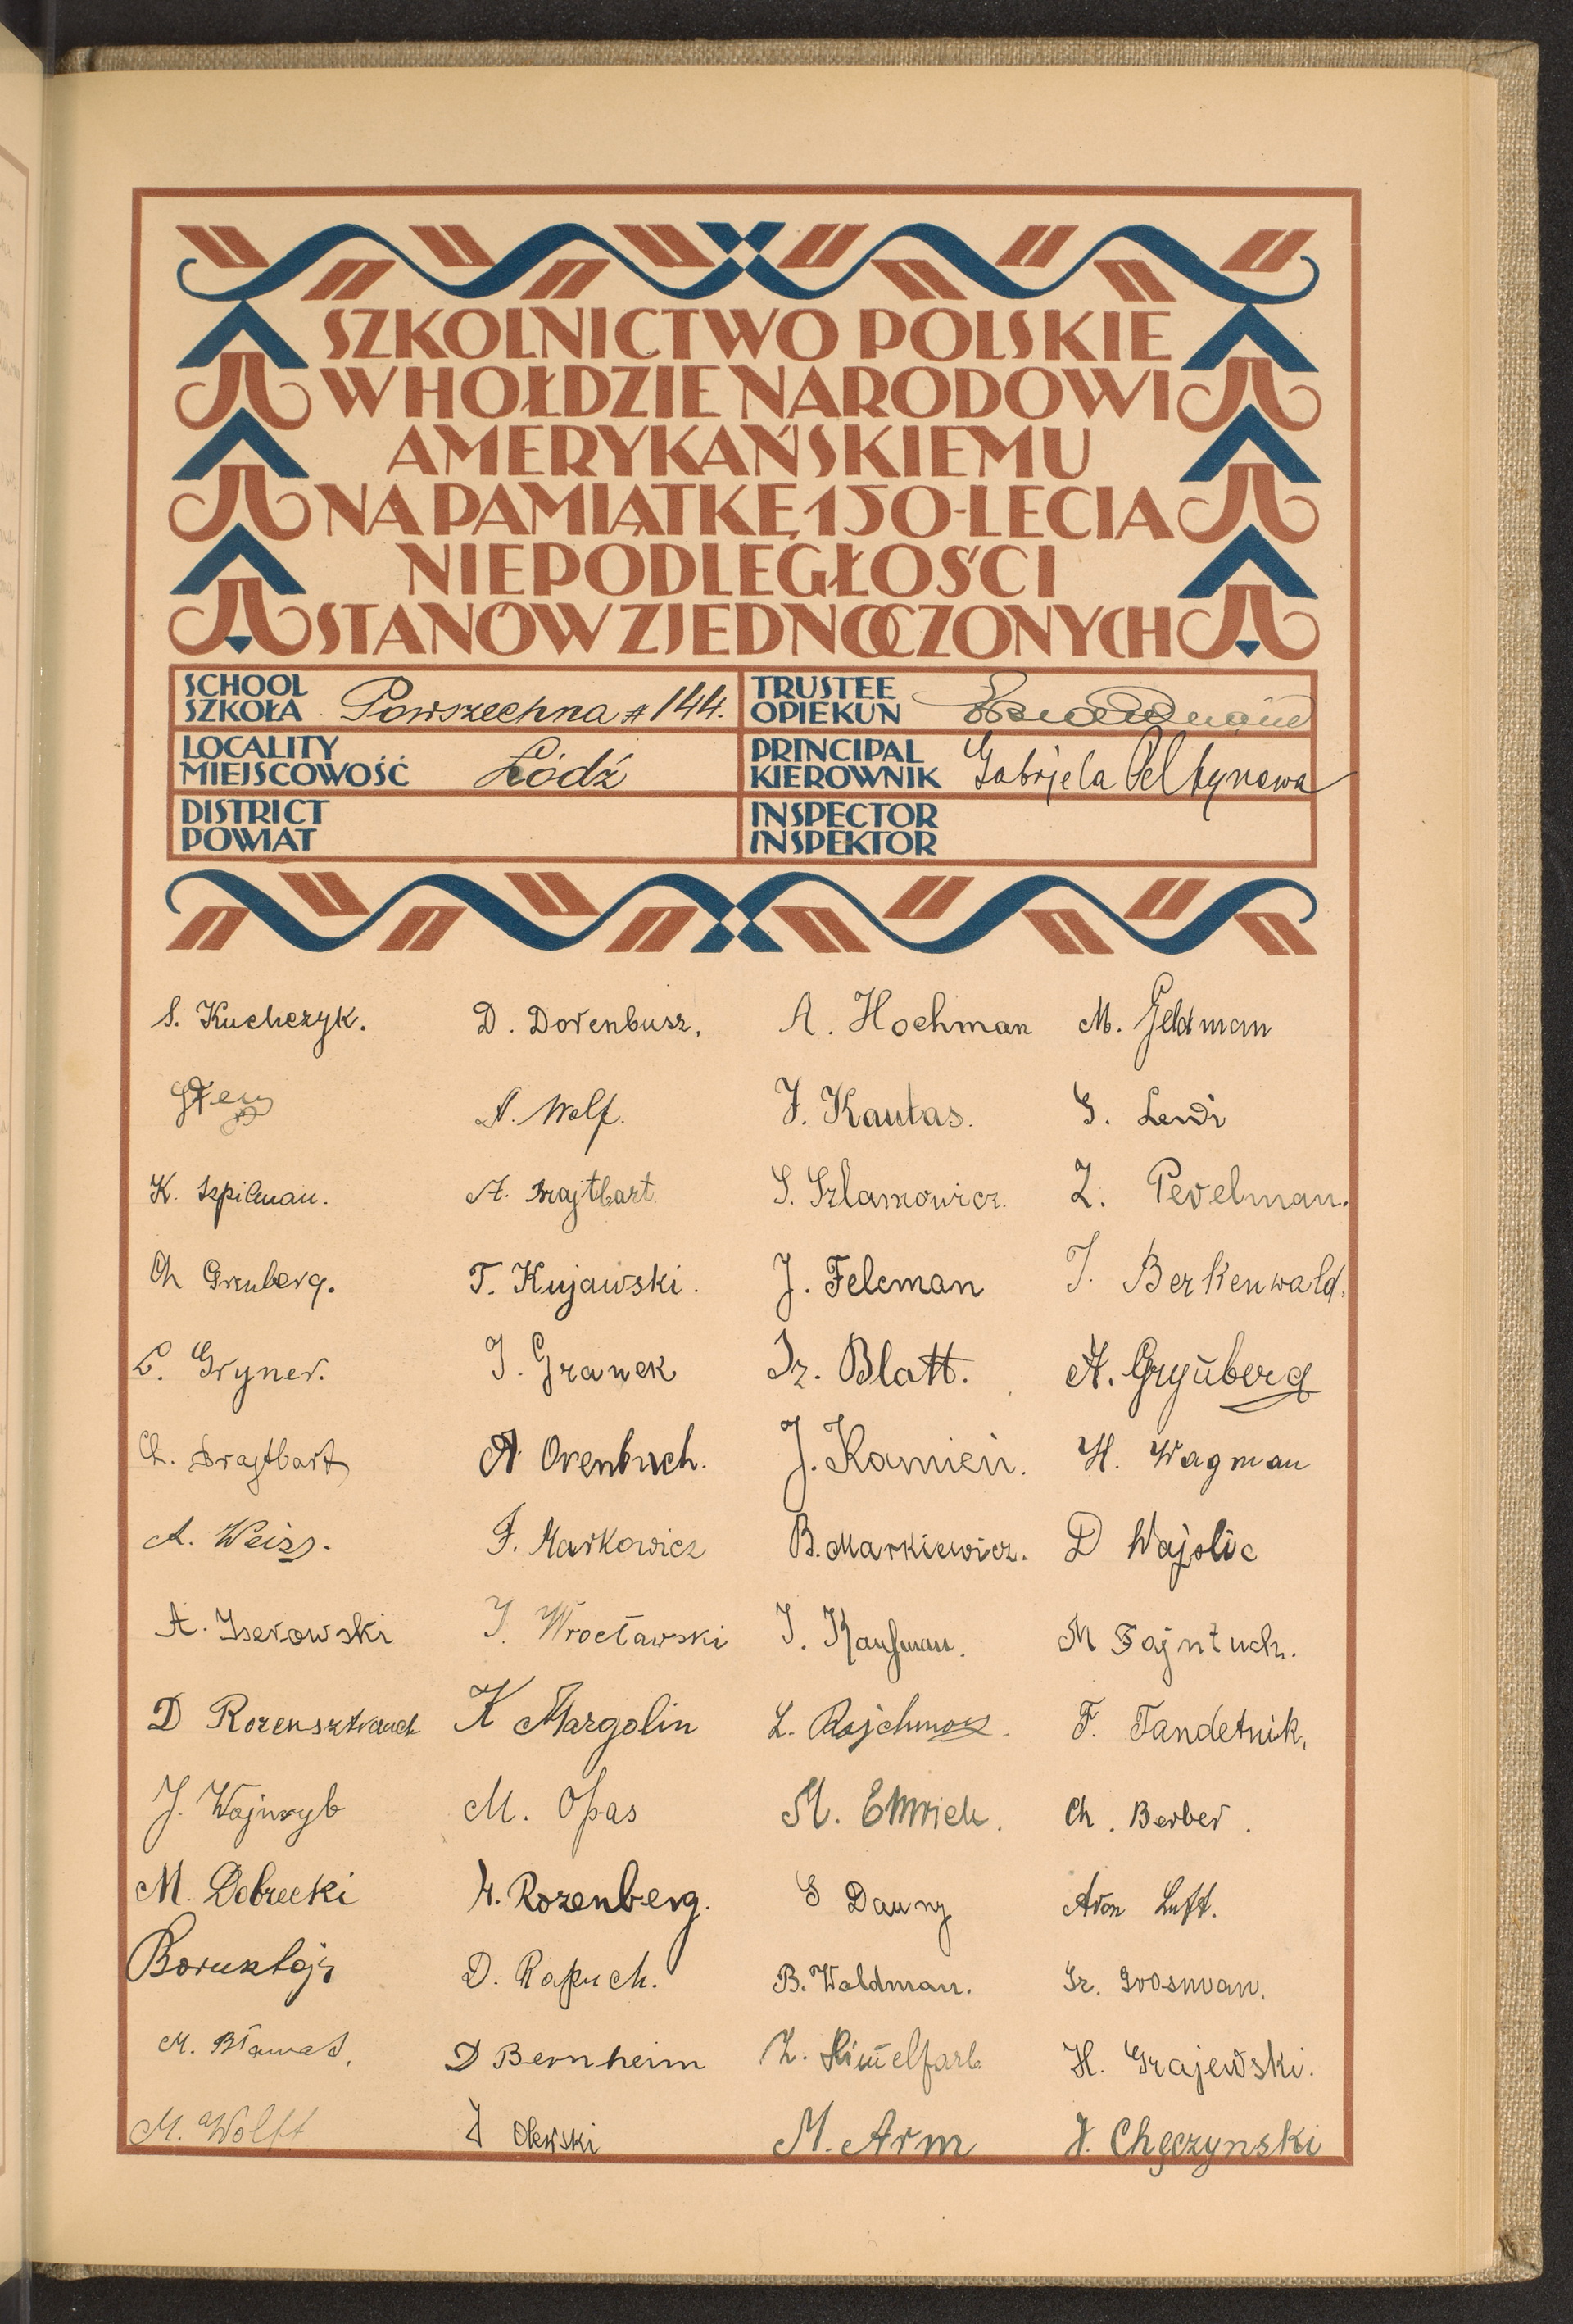 SZKOLNICTWO POLSKIE
W HOŁDZIE NARODOWI
AMERYKAŃSKIEMU
NA PAMIĄTKĘ 150-LECIA
NIEPODLEGŁOŚCI
STANÓW ZJEDNOCZONYCH
SCHOOL
SZKOŁA Powszechna # 144.
TRUSTEE
OPIEKUN
LOCALITY
MIEJSCOWOŚĆ Łódź
PRINCIPAL
KIEROWNIK Gabrjela
DISTRICT
POWIAT
INSPECTOR
INSPEKTOR
S. Kuchczyk. D. Dorenbusz, A. Hochman M. Feldman
A. Wolf. J. Kautas. G. Lewi
K. Szpilman. A. Brajtbart S. Szlamowicz. Z. Perelman.
Ch Grinberg. T. Kujawski. J. Felcman J. Berkenwald.
L. Gryner. J. Granek Iz. Blatt. A. Grynberg
Ch. Brajtbart A. Orenbuch. J. Kamień. H. Wagman
A. Weiss. F. Markowicz B. Markiewicz. D Wajslic
A. Iserowski J. Wrocławski J. Kaufman. M Fajntuch.
D Rozensztrauch K Margolin L. Rajchman. F. Tandetnik.
J. Wajnryb M. Opas M. Emrich. Ch. Berber.
M. Dobrecki H. Rozenberg. S Dauny Aron Luft.
D. Rapuch. B. Waldman. Gr. Grosman.
M. Bławat. D Bernheim Z. Himelfarb H. Grajewski.
M. Wolff J Olewski M. Arm J. Chęczynski